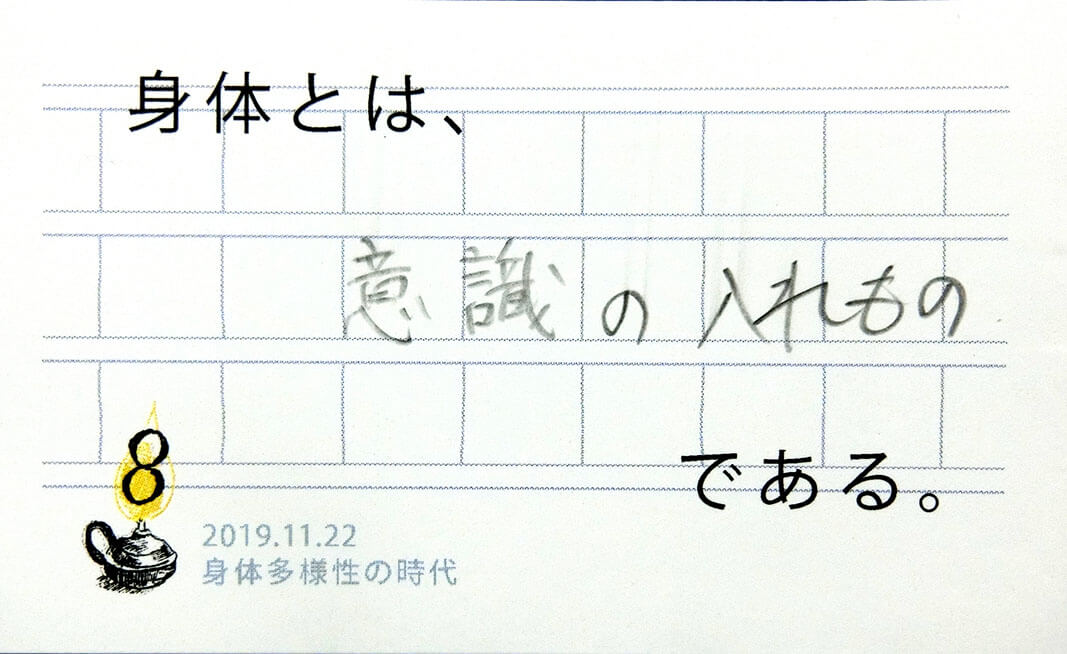 身体とは、
意識の入れもの
である。
8
2019.11.22
身体多様性の時代